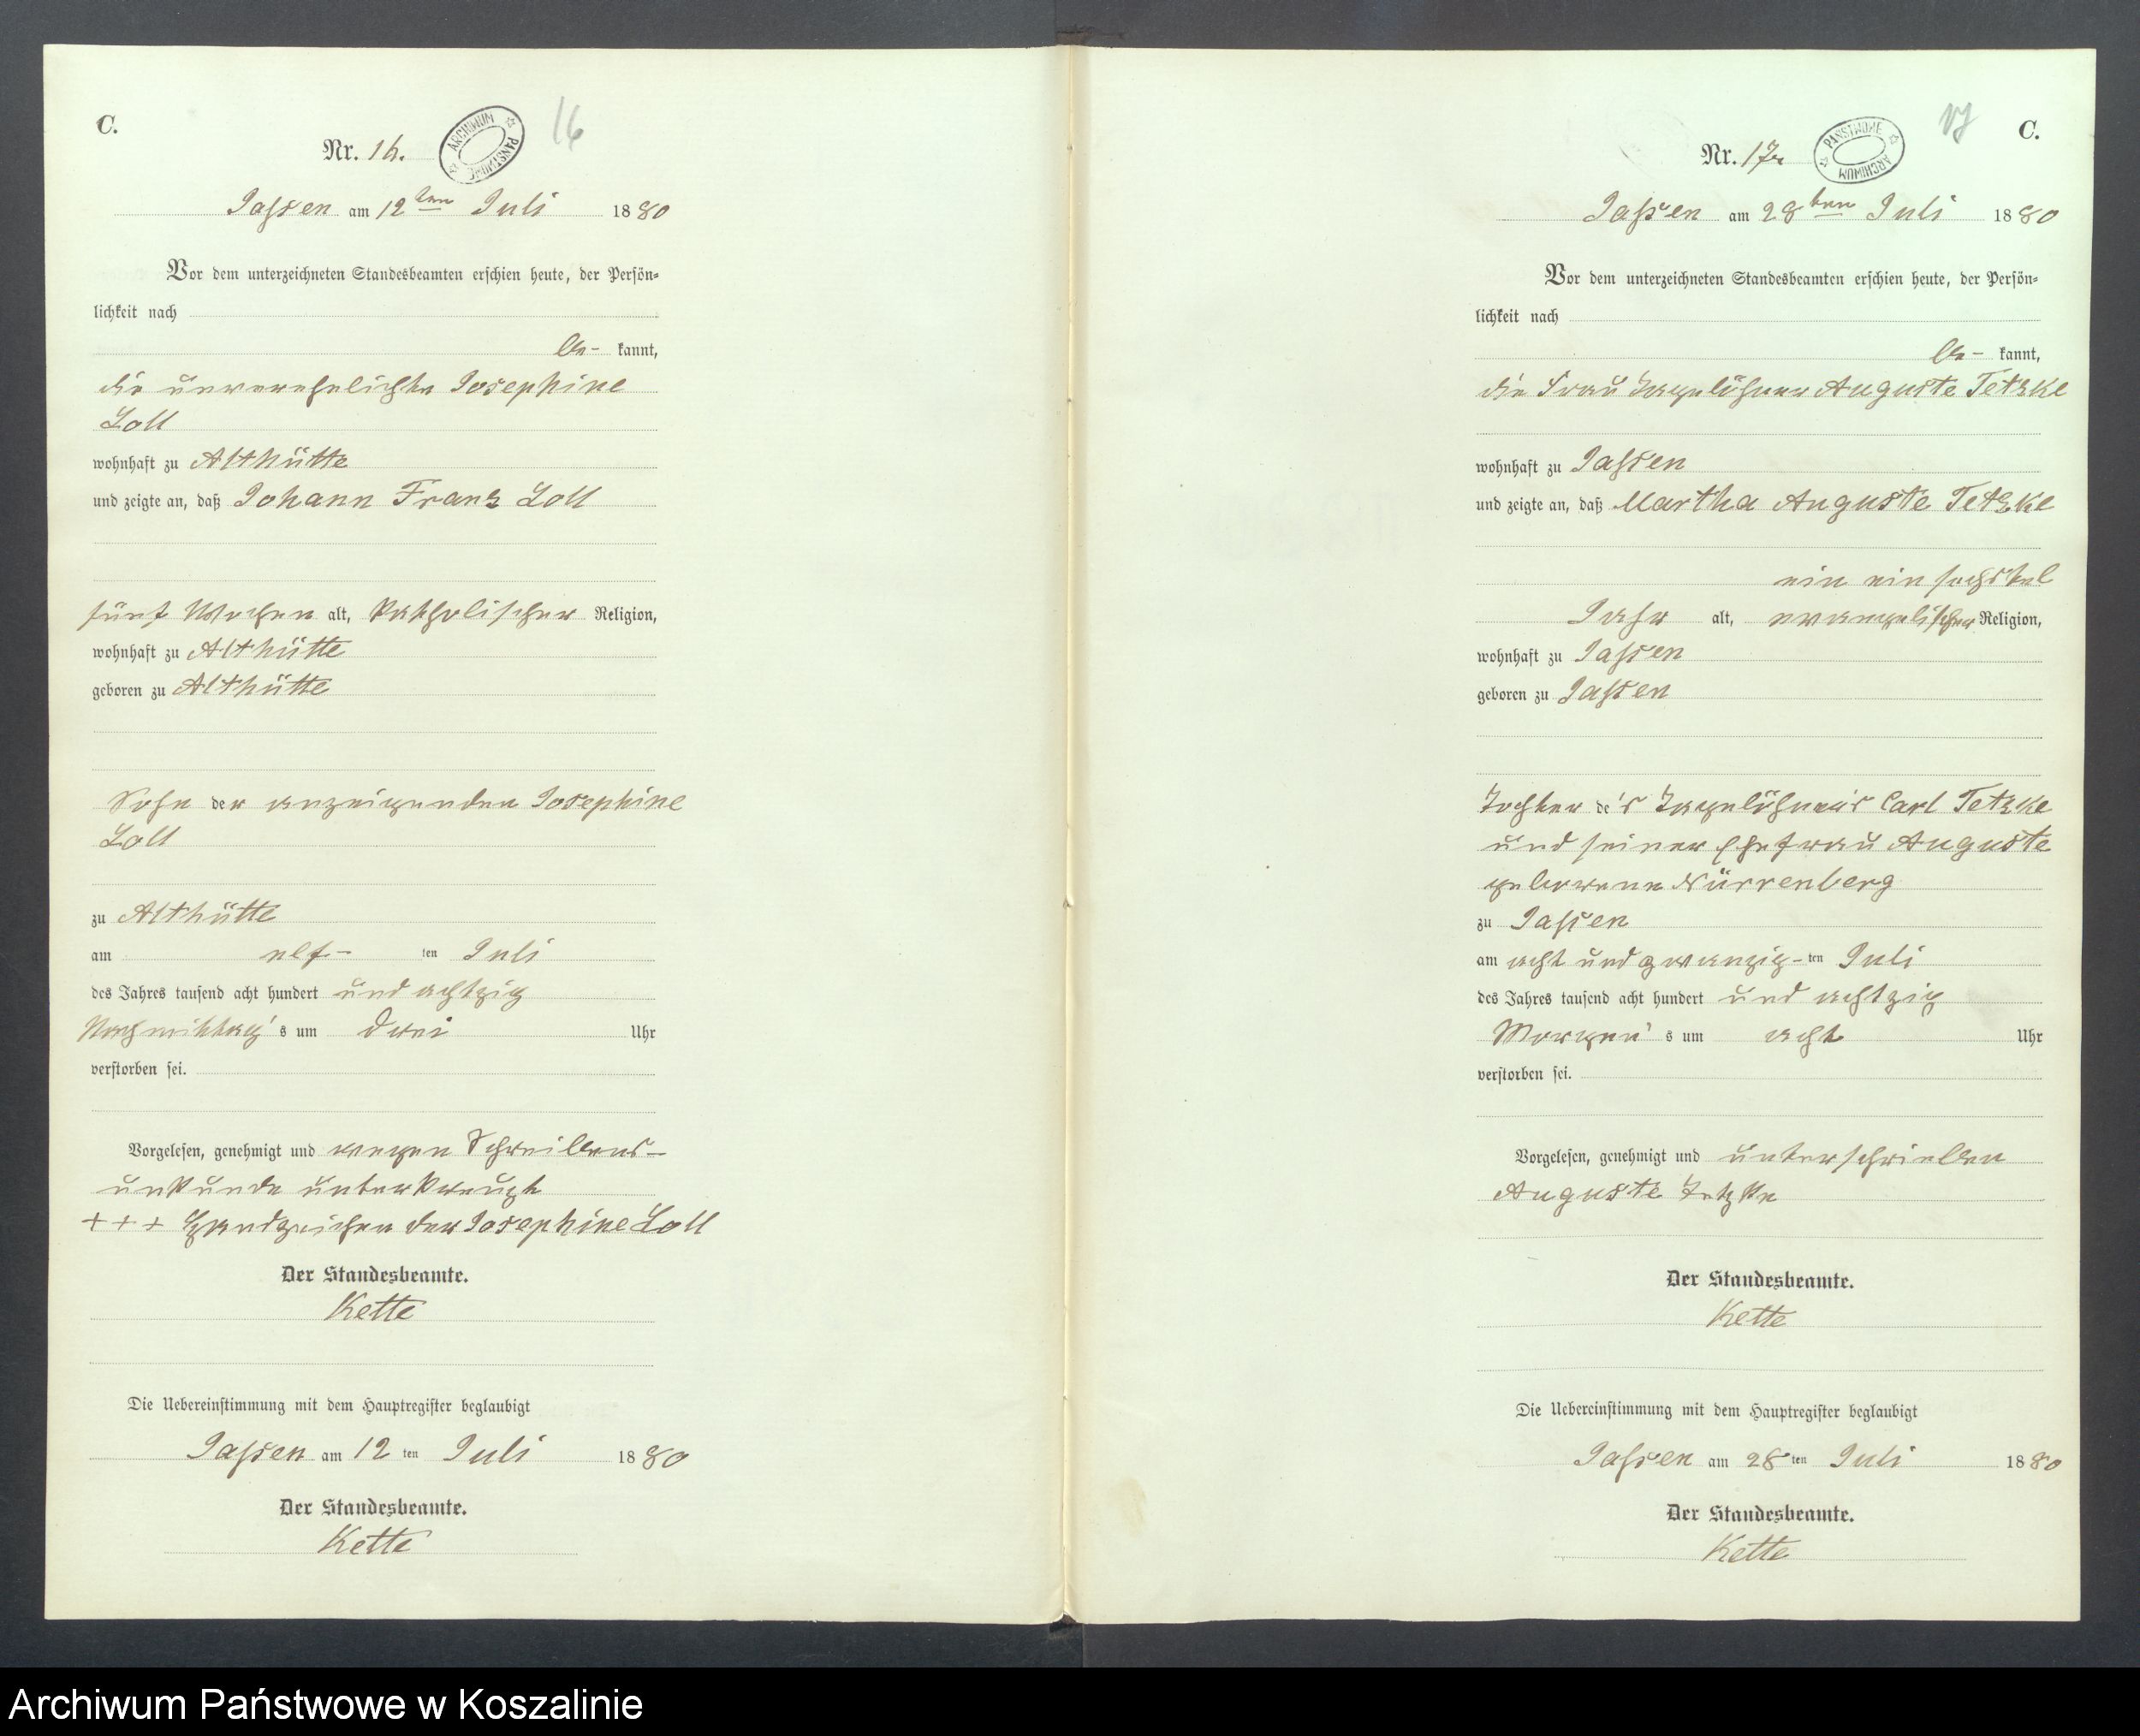 C.
Nr. 16.
ARCHIWUM PAŃSTWOWE
16
Jassen am 12ten Juli 1880
Vor dem unterzeichneten Standesbeamten erschien heute, der Persön-
lichkeit nach
be- kannt,
die unverehelichte Josephine
Loll
wohnhaft zu Althütte
und zeigte an, daß Johann Franz Loll
fünf Wochen alt, katholischer Religion,
wohnhaft zu Althütte
geboren zu Althütte
Sohn der anzeigenden Josephine
Loll
zu Althütte
am elf- ten Juli
des Jahres tausend acht hundert und achtzig
Nachmittag's um drei Uhr
verstorben sei.
Vorgelesen, genehmigt und wegen Schreibens-
unkunde unterkreuzt
+++ Handzeichen der Josephine Loll
Der Standesbeamte.
Kette
Die Uebereinstimmung mit dem Hauptregister beglaubigt
Jassen am 12 ten Juli 1880
Der Standesbeamte.
Kette
C.
Nr. 17.
PAŃSTWOWE ARCHIWUM
17
Jassen am 28ten Juli 1880
Vor dem unterzeichneten Standesbeamten erschien heute, der Persön-
lichkeit nach
be- kannt,
die Frau Tagelöhner Auguste Tetzke
wohnhaft zu Jassen
und zeigte an, daß Martha Auguste Tetzke
ein ein sechstel
Jahr alt, evangelischer Religion,
wohnhaft zu Jassen
geboren zu Jassen
Tochter de's Tagelöhner's Carl Tetzke
und seiner Ehefrau Auguste
geborene Nürrenberg
zu Jassen
am acht und zwanzig- ten Juli
des Jahres tausend acht hundert und achtzig
Morgen's um acht Uhr
verstorben sei.
Vorgelesen, genehmigt und unterschrieben
Auguste Tetzke
Der Standesbeamte.
Kette
Die Uebereinstimmung mit dem Hauptregister beglaubigt
Jassen am 28 ten Juli 1880
Der Standesbeamte.
Kette
Archiwum Państwowe w Koszalinie